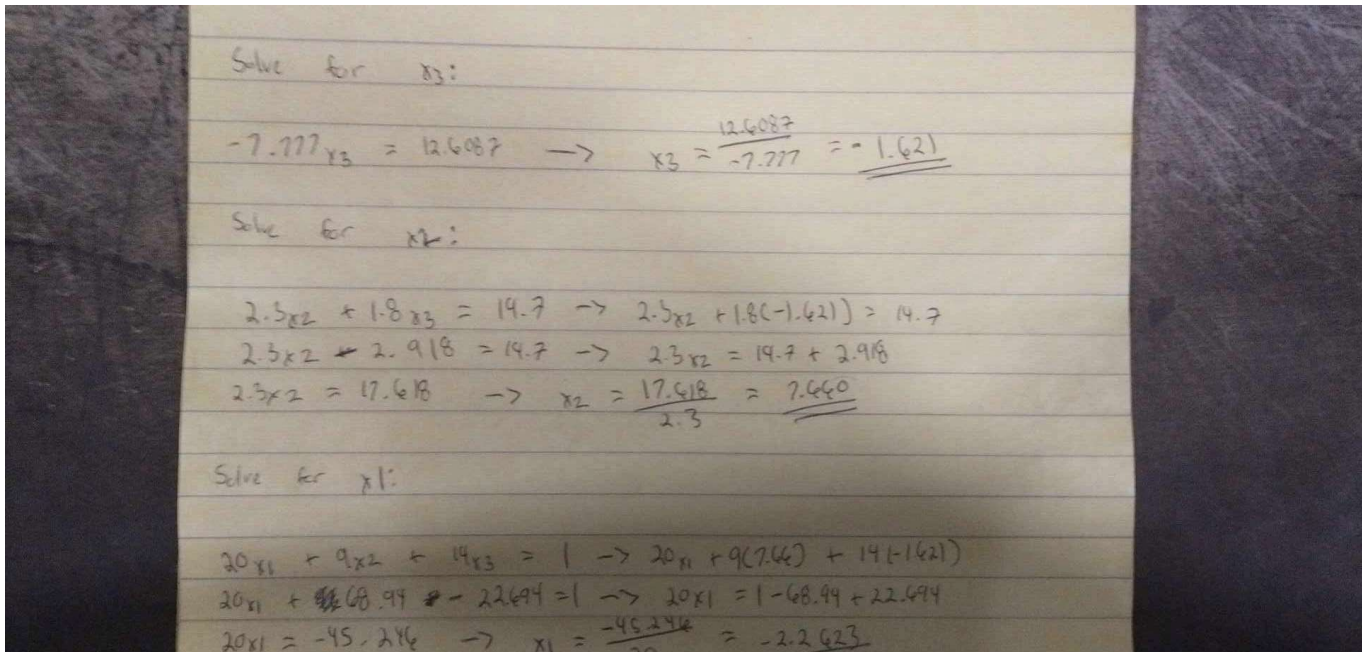 Solve for x3:
-7.777x3 = 12.6087 -> x3 = 12.6087 / -7.777 = -1.621
Solve for x2:
2.3x2 + 1.8x3 = 14.7 -> 2.3x2 + 1.8(-1.621) = 14.7
2.3x2 - 2.918 = 14.7 -> 2.3x2 = 14.7 + 2.918
2.3x2 = 17.618 -> x2 = 17.618 / 2.3 = 7.660
Solve for x1:
20x1 + 9x2 + 14x3 = 1 -> 20x1 + 9(7.66) + 14(-1.621)
20x1 + 68.94 - 22.694 = 1 -> 20x1 = 1 - 68.94 + 22.694
20x1 = -45.246 -> x1 = -45.246 / 20 = -2.2623